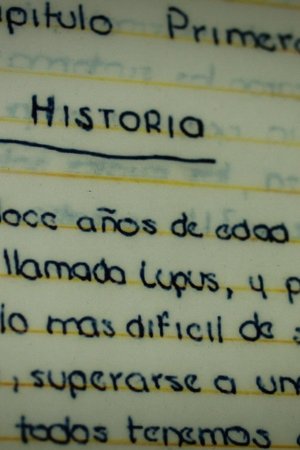 pitulo Primero
HISTORIA
doce años de edad
llamada Lupus, y p
io mas dificil de s
, superarse a un
todos tenemos